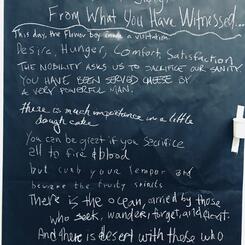 From What You Have Witnessed...
This day, the Flower boy made a visitation
Desire, Hunger, Comfort, Satisfaction
THE NOBILITY ASKS US TO SACRIFICE OUR SANITY
YOU HAVE BEEN SERVED CHEESE BY
A VERY POWERFUL MAN.
there is much importance in a little
dough cake
You can be great if you sacrifice
all to fire & blood
but curb your temper and
beware the trusty spirits
There is the ocean, carried by those
who seek, wander, forget, and
And there is desert with those who